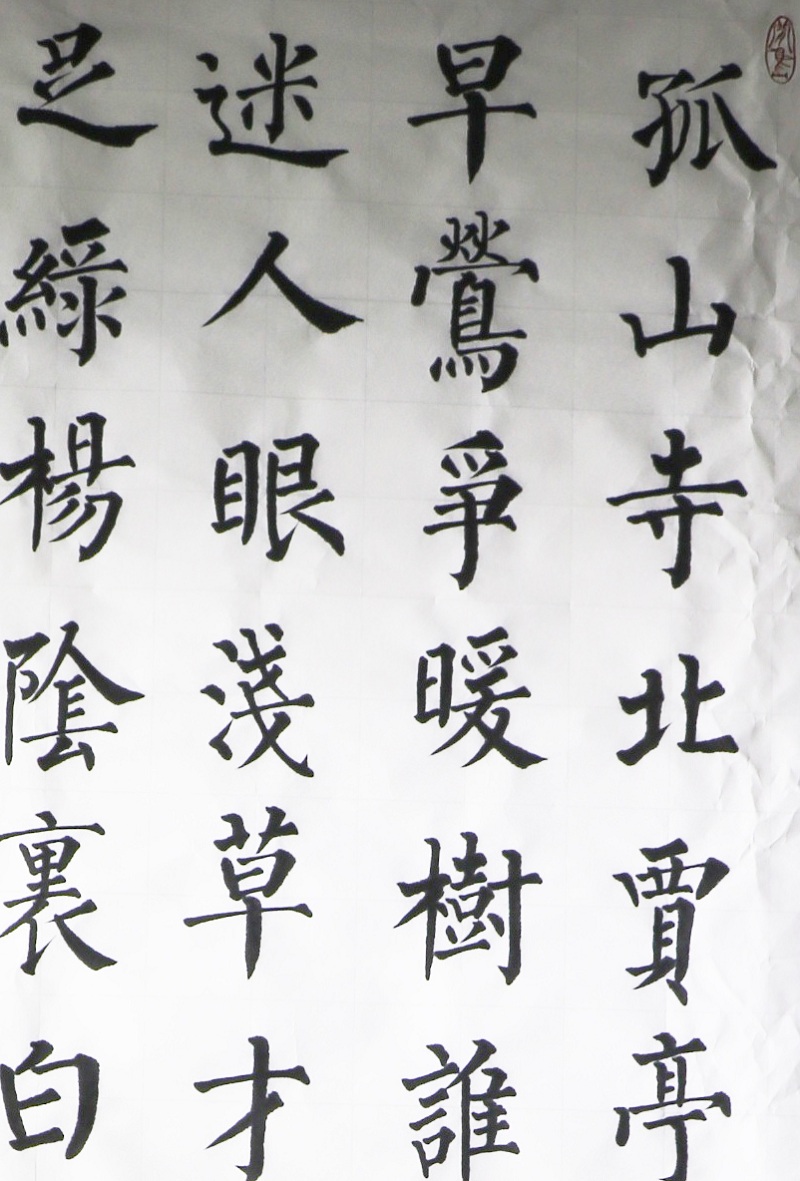 孤山寺北賈亭
早鶯爭暖樹誰
迷人眼淺草才
足綠楊陰裏白